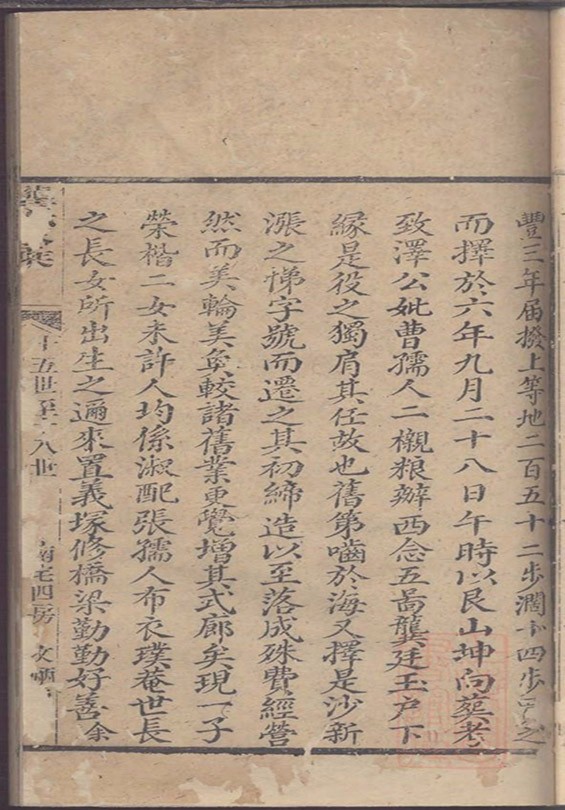 豐三年届撥上等地二百五十二步濶十四步
而擇於六年九月二十八日午時以艮山坤向葬考
致澤公妣曹孺人二櫬粮辦西念五啚龔廷玉戶下
緣是役之獨肩其任故也舊第嚙於海又擇是沙新
漲之悌字號而遷之其初締造以至落成殊費經營
然而美輪美奐較諸舊業更覺增其式廊矣現一子
榮楷二女未許人均係淑配張孺人布衣璞菴世長
之長女所出生之遍來置義塚修橋梁勤勤好善余
十五世至十八世
四房